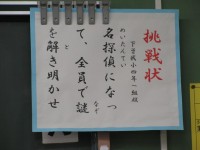 挑戦状
下曽我小四年一組殿
めいたんてい
名探偵になっ
なぞ
て、全員で謎
と
を解き明かせ